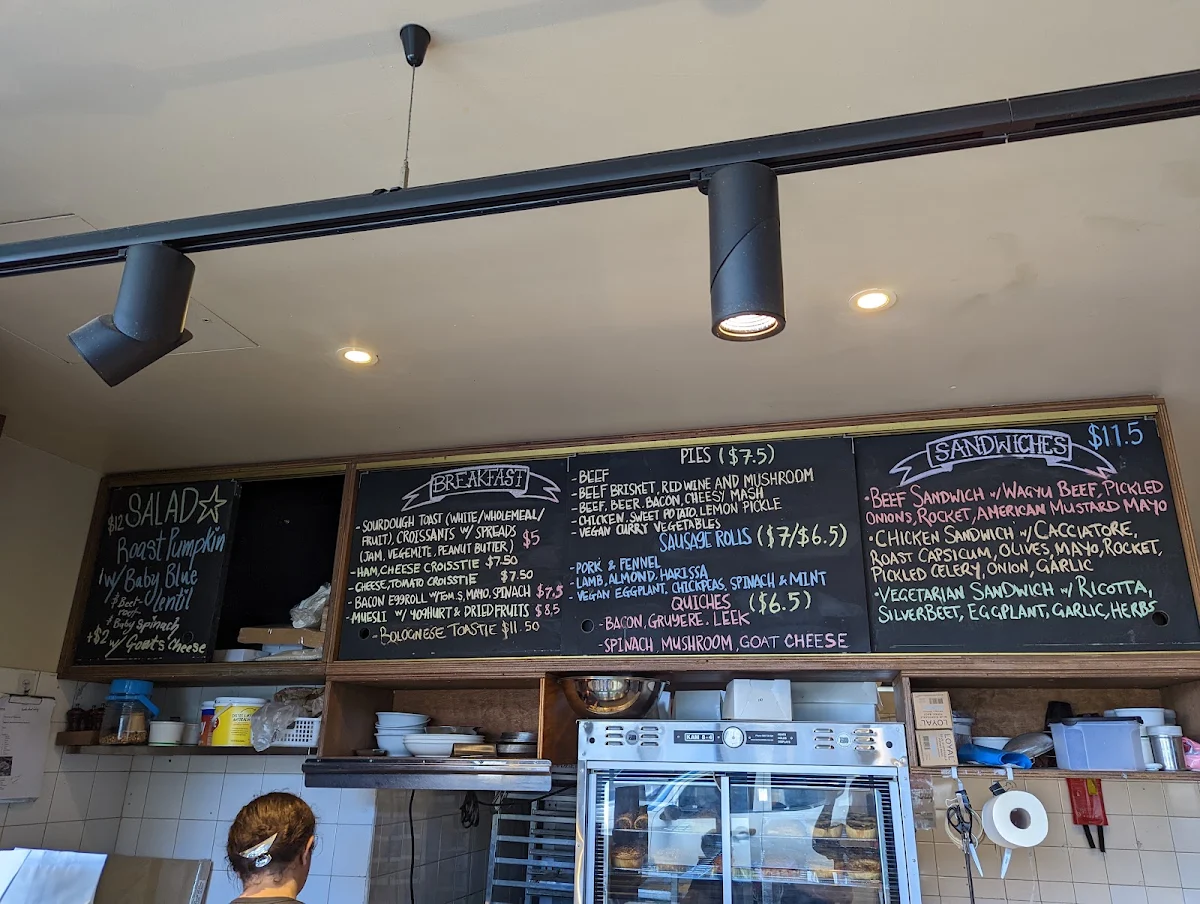 SALAD
$12
Roast Pumpkin
w/ Baby Blue
lentil
+ Beet-
root
+ Baby Spinach
+$2 w/ Goat's Cheese
BREAKFAST
- SOURDOUGH TOAST (WHITE/WHOLEMEAL/
FRUIT), CROISSANTS W/ SPREADS
(JAM, VEGEMITE, PEANUT BUTTER) $5
- HAM, CHEESE CROISSTIE $7.50
- CHEESE, TOMATO CROISSTIE $7.50
- BACON EGGROLL W/TOM.S, MAYO, SPINACH $7.5
- MUESLI W/ YOGHURT & DRIED FRUITS $8.5
- BOLOGNESE TOASTIE $11.50
PIES ($7.5)
- BEEF
- BEEF BRISKET, RED WINE AND MUSHROOM
- BEEF, BEER, BACON, CHEESY MASH
- CHICKEN, SWEET POTATO, LEMON PICKLE
- VEGAN CURRY VEGETABLES
SAUSAGE ROLLS ($7/$6.5)
- PORK & FENNEL
- LAMB, ALMOND, HARISSA
- VEGAN EGGPLANT, CHICKPEAS, SPINACH & MINT
QUICHES ($6.5)
- BACON, GRUYERE. LEEK
- SPINACH MUSHROOM, GOAT CHEESE
SANDWICHES $11.5
• BEEF SANDWICH W/WAGYU BEEF, PICKLED
ONIONS, ROCKET, AMERICAN MUSTARD MAYO
• CHICKEN SANDWICH W/CACCIATORE,
ROAST CAPSICUM, OLIVES, MAYO, ROCKET,
PICKLED CELERY, ONION, GARLIC
• VEGETARIAN SANDWICH W/ RICOTTA,
SILVERBEET, EGGPLANT, GARLIC, HERBS
LOYAL
LOYAL